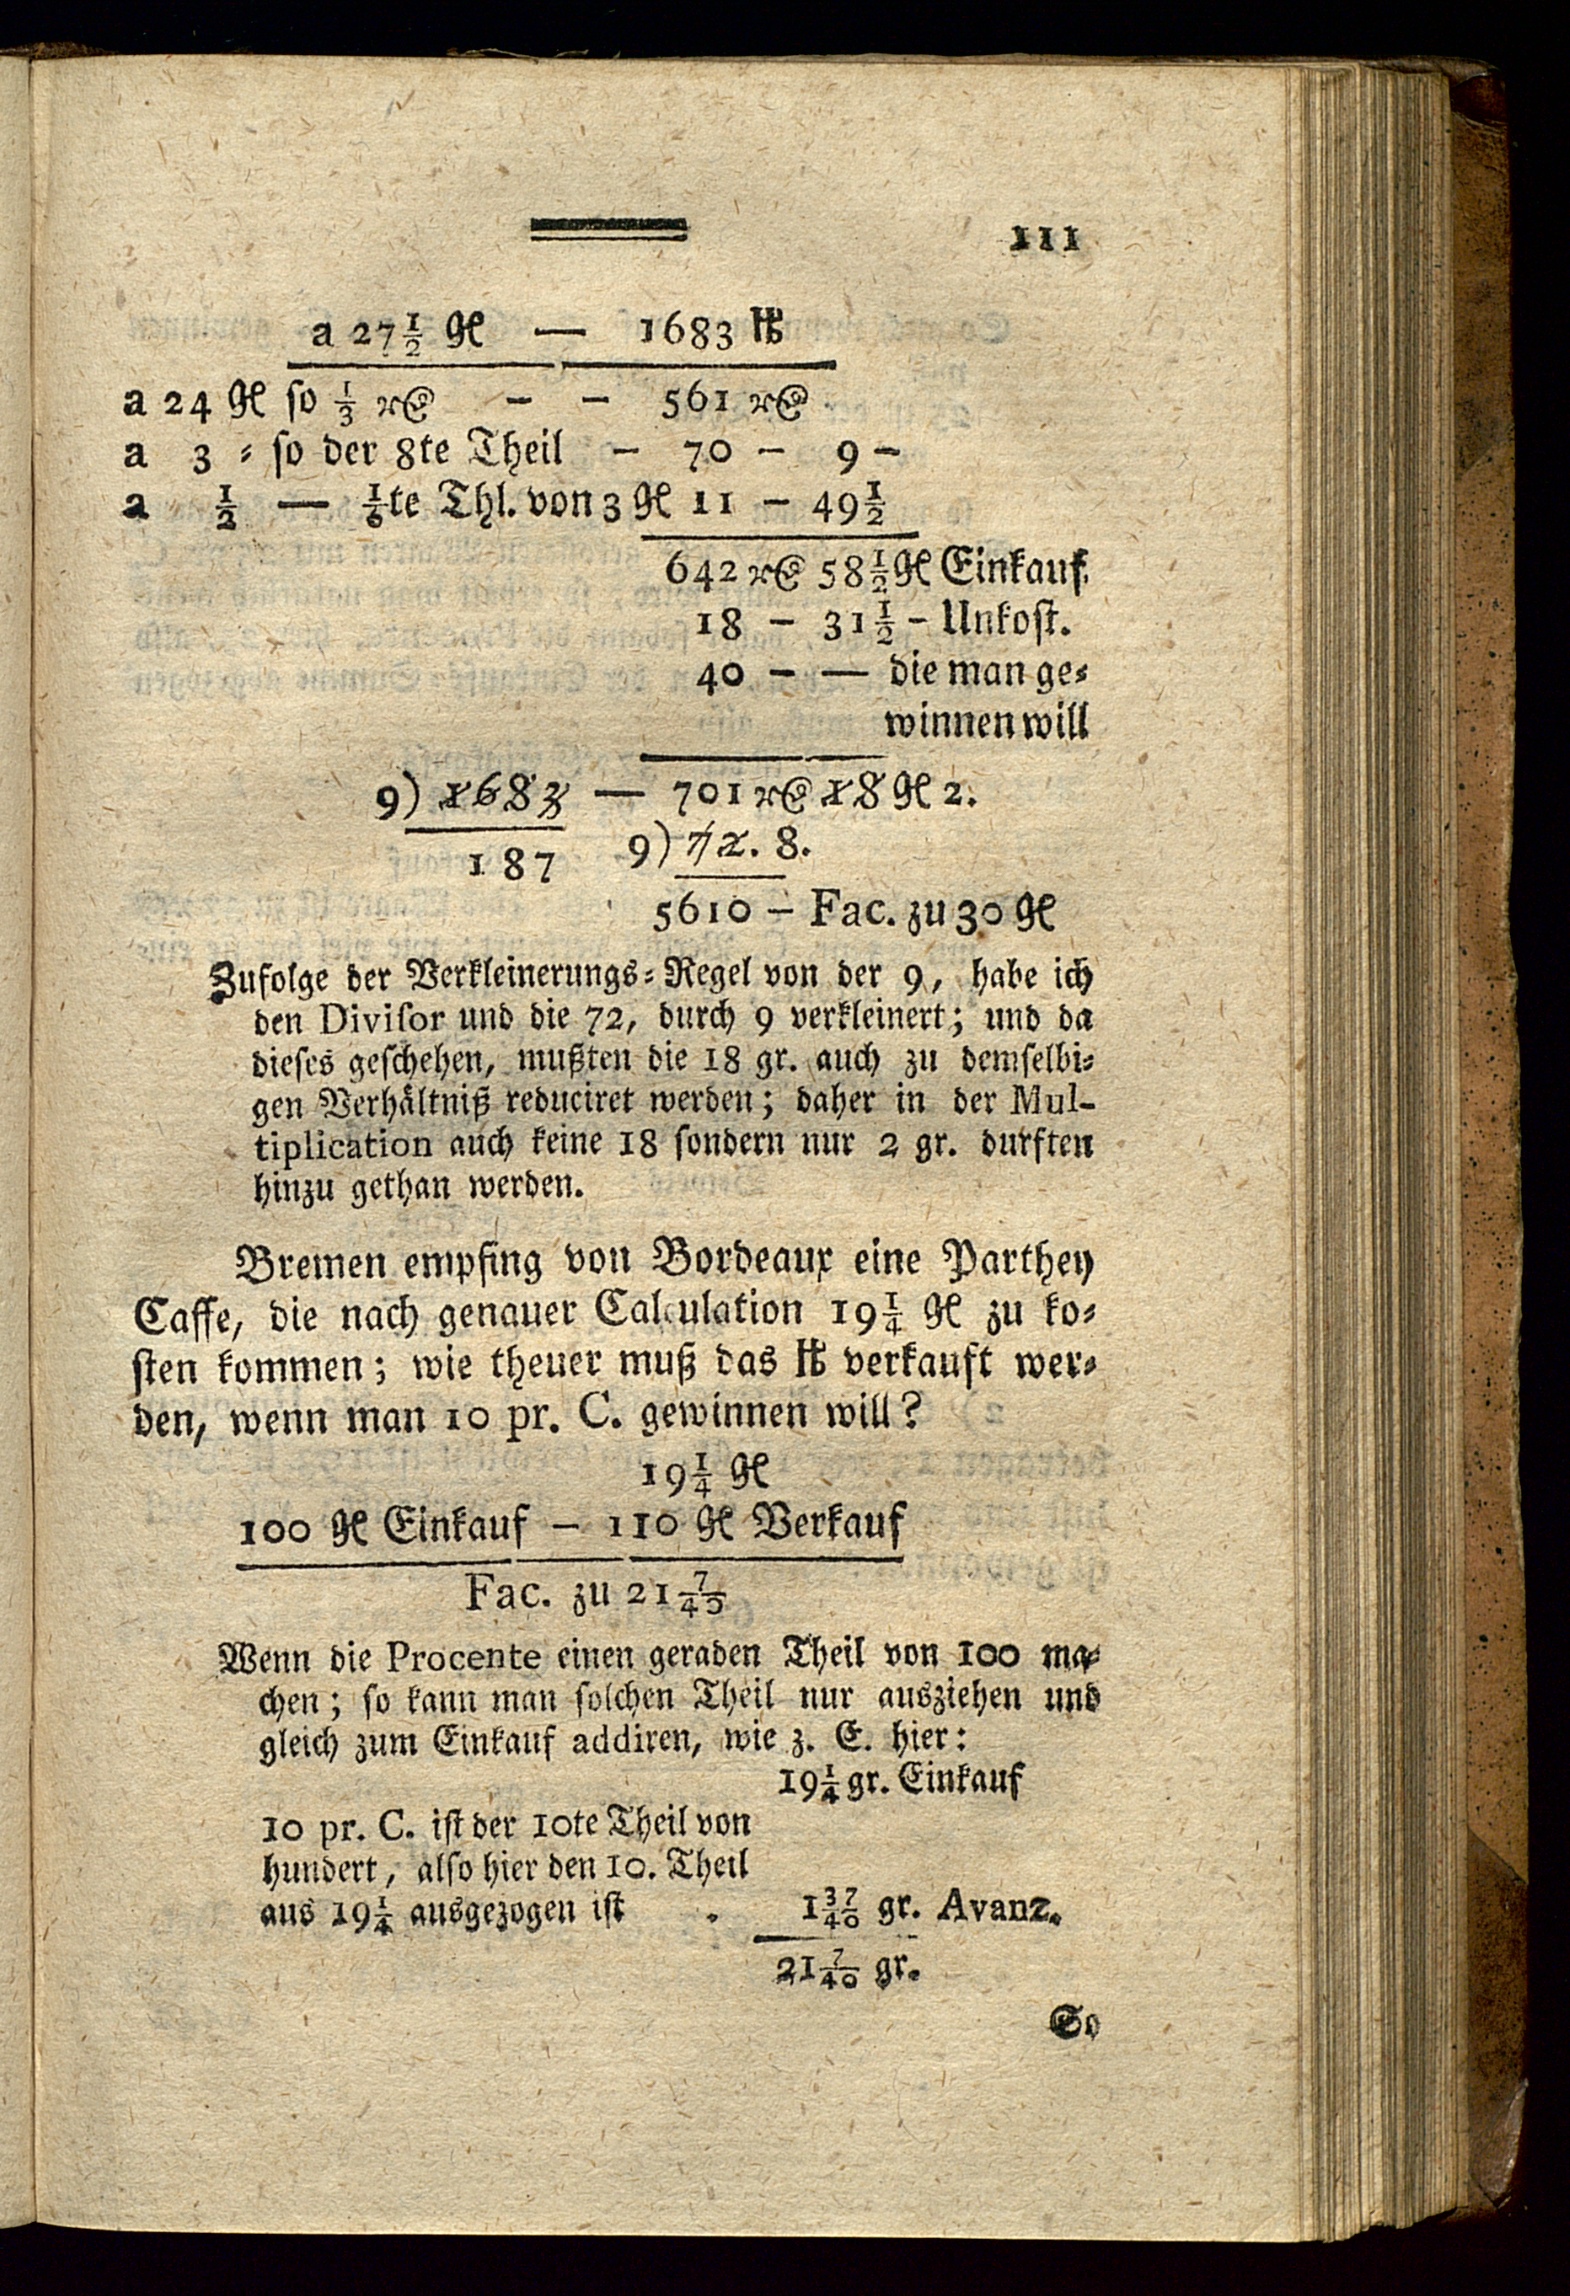 111
a 27½ gl — 1683 ℔
a 24 gl so ⅓ r₰ - - 561 r₰
a 3 ⸗ so der 8te Theil - 70 - 9 -
a ½ — ⅙te Thl. von 3 gl 11 - 49½
642 r₰ 58½ gl Einkauf.
18 - 31½ - Unkost.
40 - — die man ge⸗
winnen will
9) 1683 — 701 r₰ 18 gl 2.
187 9) 72. 8.
5610 — Fac. zu 30 gl
Zufolge der Verkleinerungs⸗Regel von der 9, habe ich
den Divisor und die 72, durch 9 verkleinert; und da
dieses geschehen, mußten die 18 gr. auch zu demselbi⸗
gen Verhältniß reduciret werden; daher in der Mul-
tiplication auch keine 18 sondern nur 2 gr. durften
hinzu gethan werden.
Bremen empfing von Bordeaux eine Parthey
Caffe, die nach genauer Calculation 19¼ gl zu ko⸗
sten kommen; wie theuer muß das ℔ verkauft wer⸗
den, wenn man 10 pr. C. gewinnen will?
19¼ gl
100 gl Einkauf — 110 gl Verkauf
Fac. zu 21 7/40
Wenn die Procente einen geraden Theil von 100 ma⸗
chen; so kann man solchen Theil nur ausziehen und
gleich zum Einkauf addiren, wie z. E. hier:
19¼ gr. Einkauf
10 pr. C. ist der 10te Theil von
hundert, also hier den 10. Theil
aus 19¼ ausgezogen ist . 1 37/40 gr. Avanz.
21 7/40 gr.
So